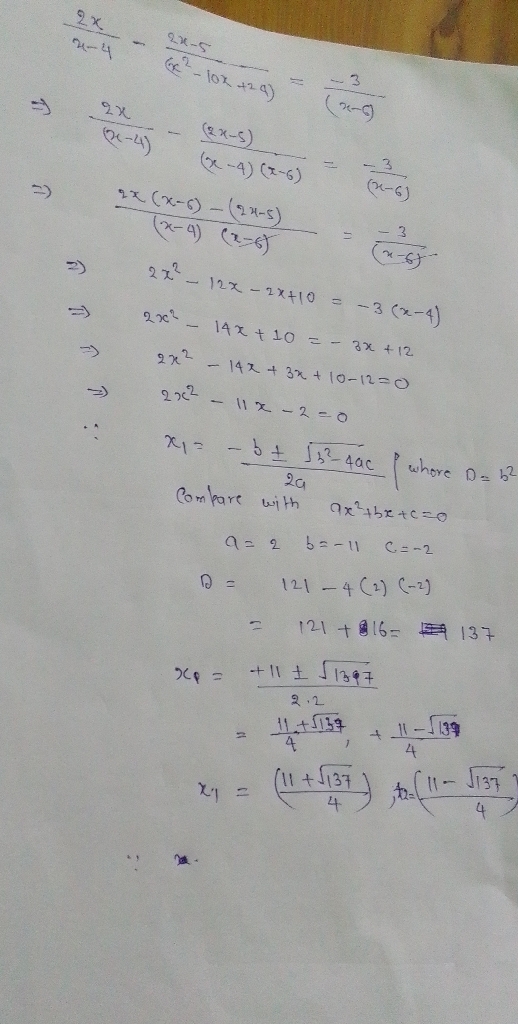 2x/(x-4) - (2x-5)/(x² - 10x + 24) = -3/(x-6)
⇒ 2x/(x-4) - (2x-5)/((x-4)(x-6)) = -3/(x-6)
⇒ (2x(x-6) - (2x-5))/((x-4)(x-6)) = -3/(x-6)
⇒ 2x² - 12x - 2x + 10 = -3(x-4)
⇒ 2x² - 14x + 10 = -3x + 12
⇒ 2x² - 14x + 3x + 10 - 12 = 0
⇒ 2x² - 11x - 2 = 0
∴ x₁ = (-b ± √(b²-4ac))/2a { where D = b²
Compare with ax² + bx + c = 0
a = 2 b = -11 c = -2
D = 121 - 4(2)(-2)
= 121 + 16 = 137
= (+11 ± √137)/2.2
= (11 + √137)/4, + (11 - √137)/4
x₁ = ((11 + √137)/4), x₂ = ((11 - √137)/4)